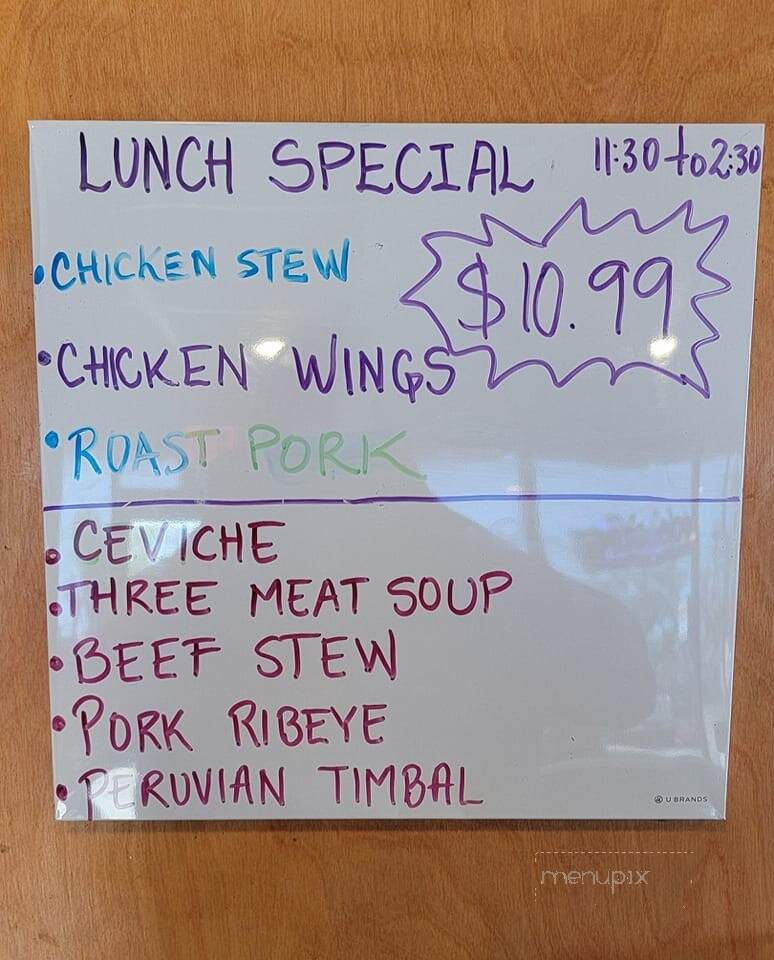 LUNCH SPECIAL 11:30 to 2:30
• CHICKEN STEW
$10.99
• CHICKEN WINGS
• ROAST PORK
• CEVICHE
• THREE MEAT SOUP
• BEEF STEW
• PORK RIBEYE
• PERUVIAN TIMBAL
U BRANDS
menupix